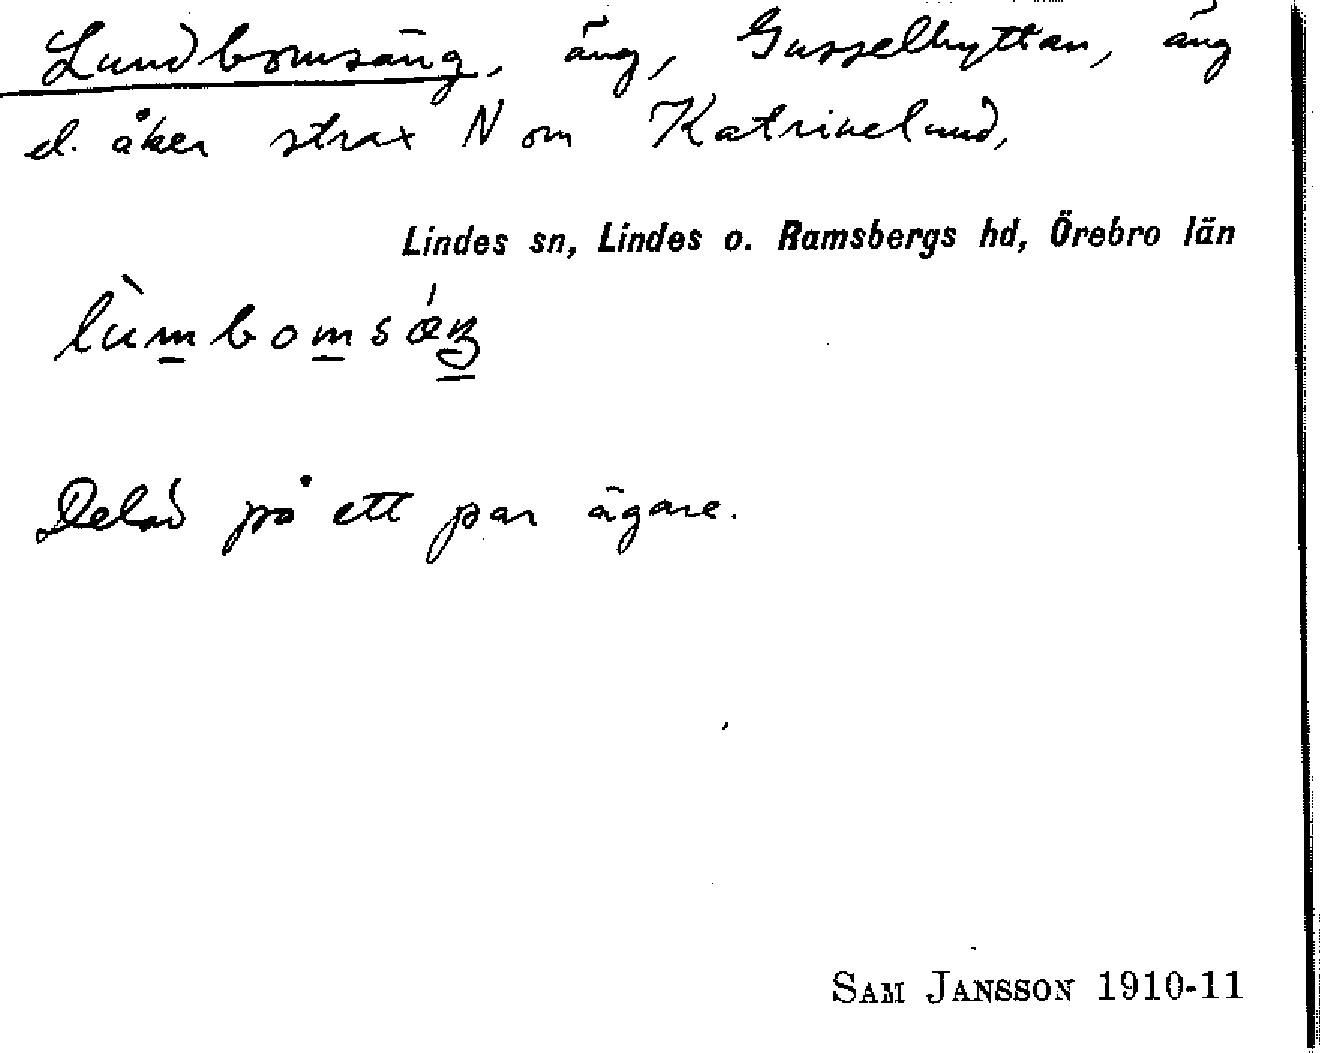 Lundbomsäng, äng, Gusselhyttan, äng
el. åker strax N om Katrinelund,
Lindes sn, Lindes o. Ramsbergs hd, Örebro län
lùm̲bom̲sǽŋ̲
Delad på ett par ägare.
SAM JANSSON 1910-11